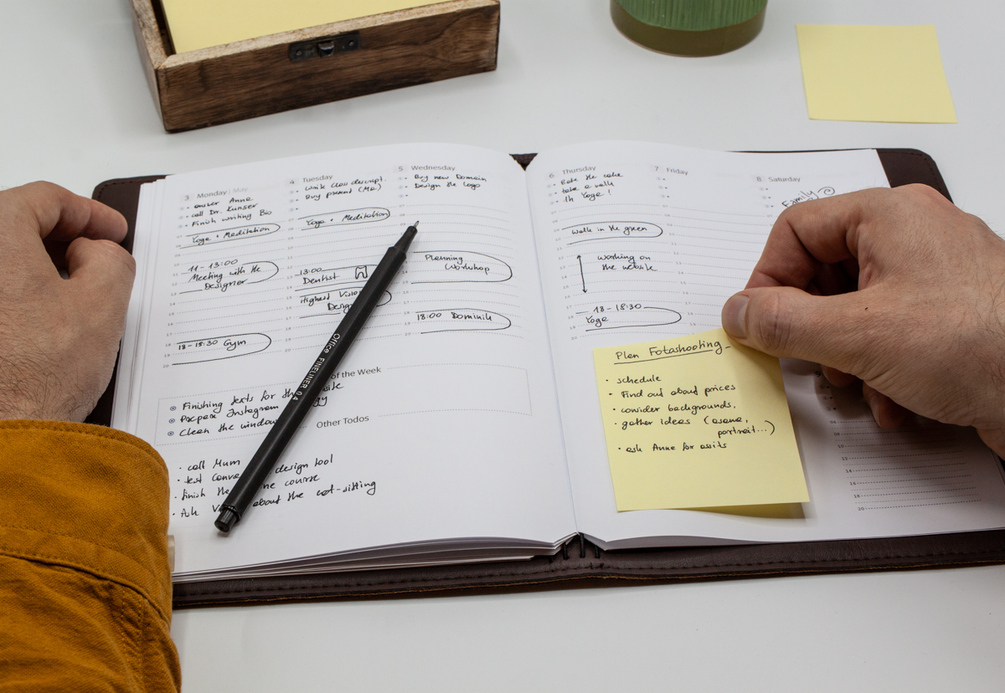 3 Monday May
answer Anne
call Dr. Sunser
Finish writing Bio
Yoga + Meditation
11 - 13:00
Meeting with the
Designer
18 - 18:30 Gym
4 Tuesday
write class descript.
Buy present (Mx.)
Yoga + Meditation
13:00
Dentist
Highest Vision
Design
5 Wednesday
Buy new Domain
Design the Logo
Planning
Workshop
18:00 Dominik
of the Week
Finishing texts for the
Prepare Instagram
Clean the window
Other Todos
call Mum
test design tool
finish the course
Ask about the cat-sitting
Office FINELINER 0.4
6 Thursday
Bake the cake
take a walk
1h Yoga!
Walk in the green
working on
the website
17 - 18:30
Yoga
7 Friday
8 Saturday
Family
Plan Fotoshooting
schedule
Find out about prices
consider backgrounds.
gather Ideas (scene,
portrait...)
ask Anne for assits